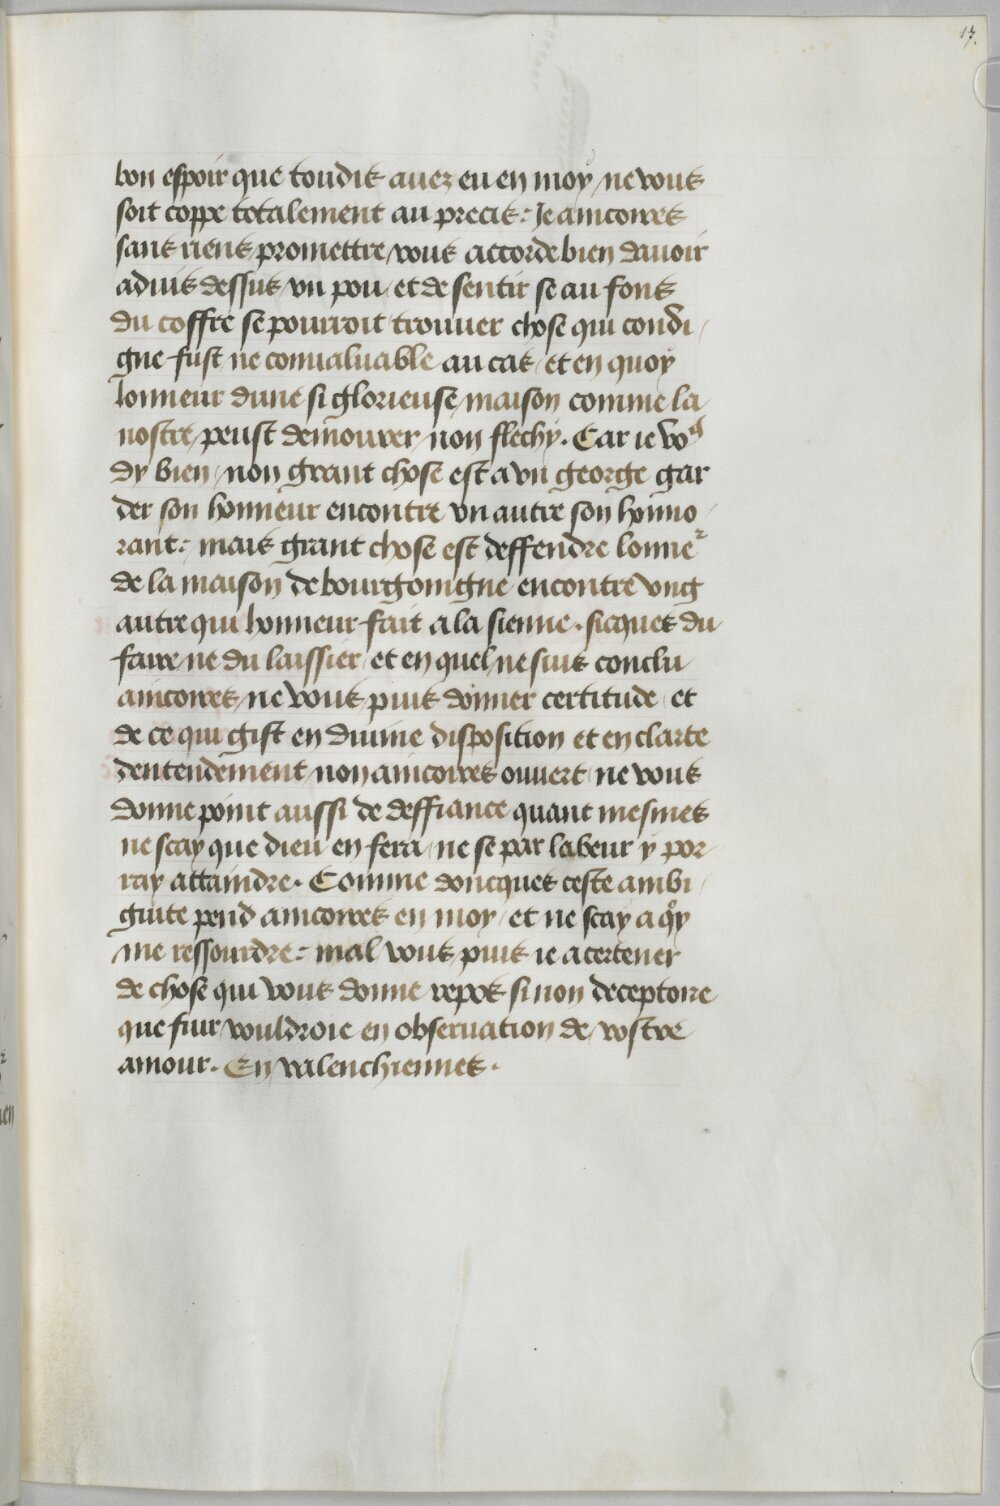 17.
bon espoir que toudis auez eu en moy / ne vous
soit coppe totalement au precis : Je aincores
sans riens promettre / vous accorde bien dauoir
aduis dessus vn pou / et de sentir se au fons
du coffre se pourroit trouuer chose qui condi /
gne fust ne conualuable au cas / et en quoy
lonneur dune si glorieuse maison comme la
nostre / peust demourer non flechy. Car ie vo9
dy bien / non grant chose est a vn george gar
der son honneur encontre vn autre son honno /
rant : mais grant chose est deffendre lonner
de la maison de bourgoingne encontre vng
autre qui honneur fait a la sienne . sicques du
faire / ne du laissier / et en quel ne suis conclu
aincores / ne vous puis donner certitude / et
de ce qui gist en diuine disposition et en clarte
dentendement / non aincores ouuert / ne vous
donne point aussi de deffiance quant mesmes
ne scay que dieu en fera / ne se par labeur y por
ray attaindre. Comme doncques ceste ambi /
guite pend aincores en moy / et ne scay a qoy
me ressourdre : mal vous puis ie acertener
de chose qui vous donne repos si non deceptoire
que fuir vouldroie en obseruation de vostre
amour. En valenchiennes .